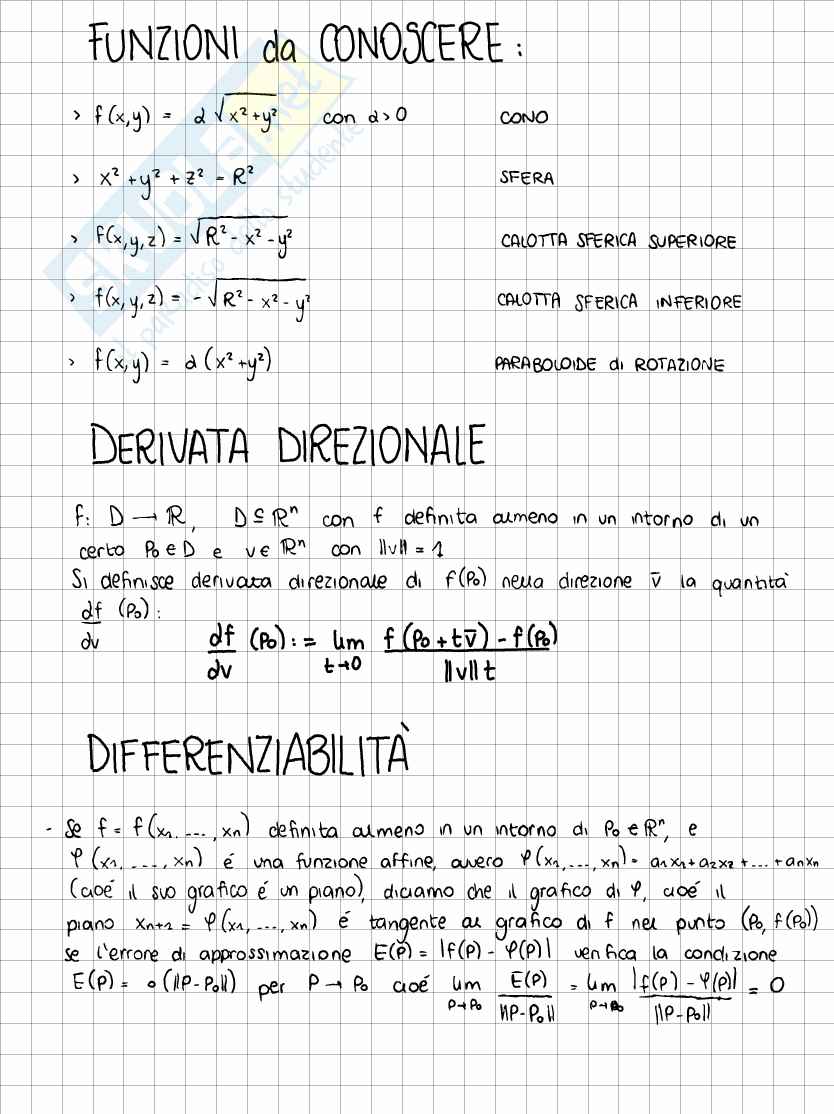 FUNZIONI da CONOSCERE:
> f(x,y) = α √x² + y² con α > 0 CONO
> x² + y² + z² = R² SFERA
> f(x,y,z) = √R² - x² - y² CALOTTA SFERICA SUPERIORE
> f(x,y,z) = - √R² - x² - y² CALOTTA SFERICA INFERIORE
> f(x,y) = α (x² + y²) PARABOLOIDE di ROTAZIONE
DERIVATA DIREZIONALE
f: D → ℝ, D ⊆ ℝⁿ con f definita almeno in un intorno di un
certo P₀ ∈ D e v ∈ ℝⁿ con ||v|| = 1
Si definisce derivata direzionale di f(P₀) nella direzione v̄ la quantità
df/dv (P₀):
df/dv (P₀) := lim t→0 f(P₀ + tv̄) - f(P₀) / ||v|| t
DIFFERENZIABILITÀ
- Se f = f(x₁, ..., xn) definita almeno in un intorno di P₀ ∈ ℝⁿ, e
φ(x₁, ..., xn) é una funzione affine, ovvero φ(x₁, ..., xn) = a₁x₁ + a₂x₂ + ... + anxn
(cioé il suo grafico é un piano), diciamo che il grafico di φ, cioé il
piano xn+1 = φ(x₁, ..., xn) é tangente al grafico di f nel punto (P₀, f(P₀))
se l'errore di approssimazione E(P) = |f(P) - φ(P)| verifica la condizione
E(P) = o(||P-P₀||) per P → P₀ cioé lim P→P₀ E(P) / ||P-P₀|| = lim P→P₀ |f(P) - φ(P)| / ||P-P₀|| = 0